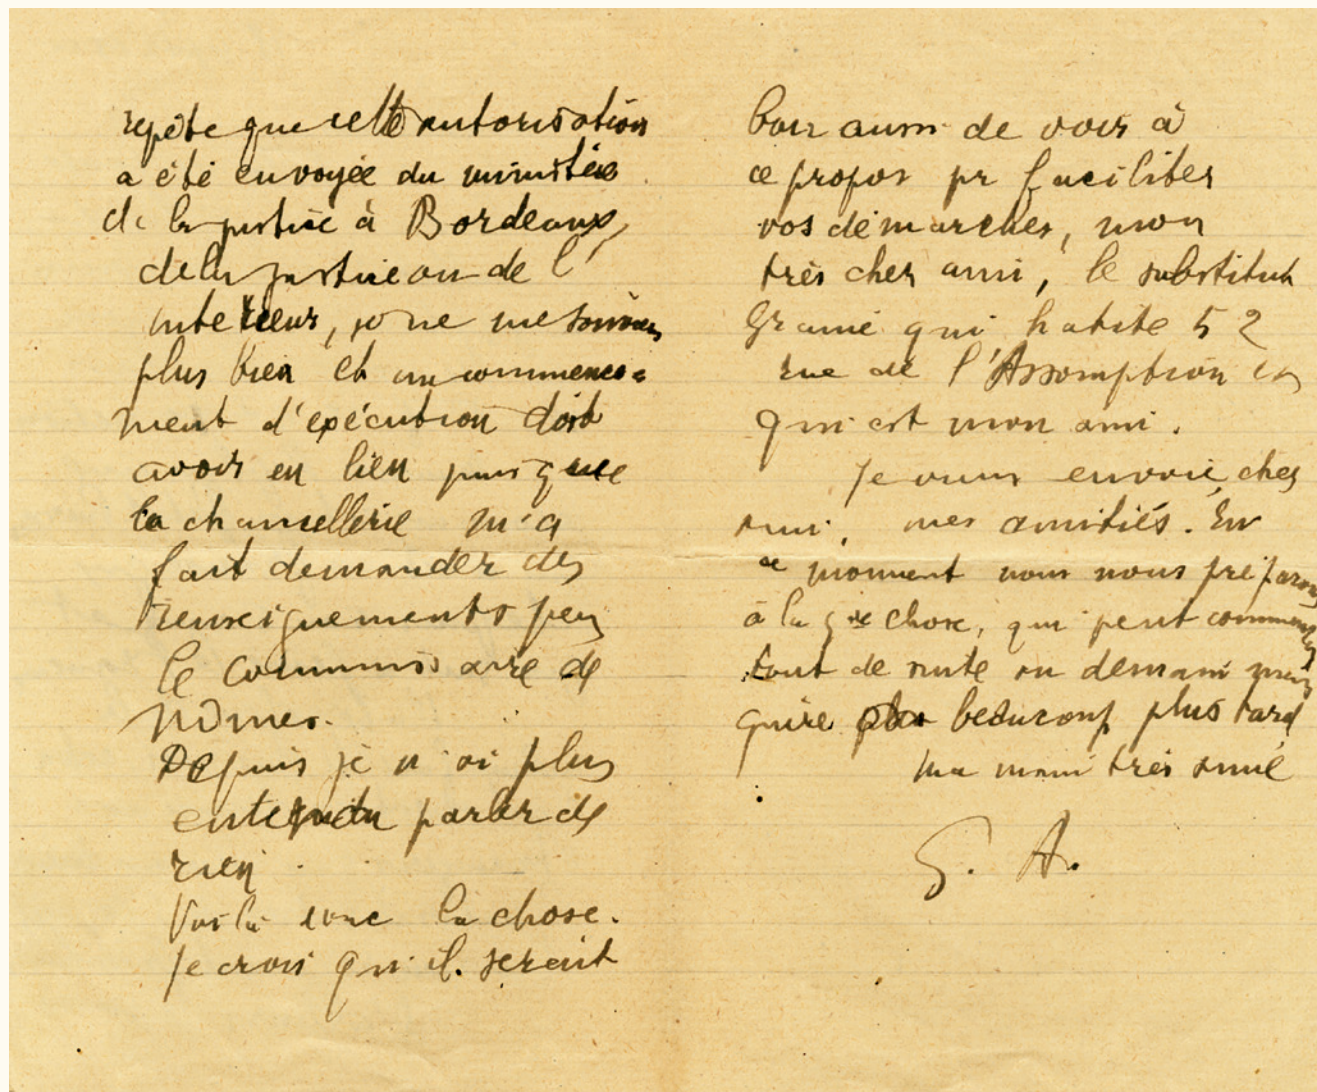 repète que cette autorisation
a été envoyée du ministère
de la justice à Bordeaux,
de la justice ou de l'
interieur, je ne me souviens
plus bien et un commence=
ment d'exécution doit
avoir eu lieu puisque
la chancellerie m'a
fait demander des
renseignements par
le commissaire de
Nimes.
Depuis je n'ai plus
entendu parler de
rien.
Voilà donc la chose.
Je crois qu'il serait
bon aussi de voir à
ce propos pr faciliter
vos démarches, mon
très cher ami, le substitut
Granié qui habite 52
rue de l'Assomption et
qui est mon ami.
Je vous envoie, cher
ami, mes amitiés. En
ce moment nous nous préparons
à la gde chose, qui peut commencer
tout de suite ou demain mais
guère plus beaucoup plus tard
Ma main très amie
G. A.